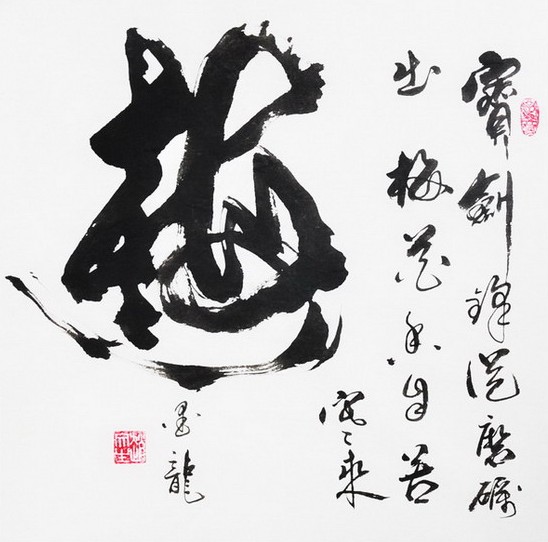 寶劍鋒從磨礪
出 梅花香自苦
寒來
墨龍